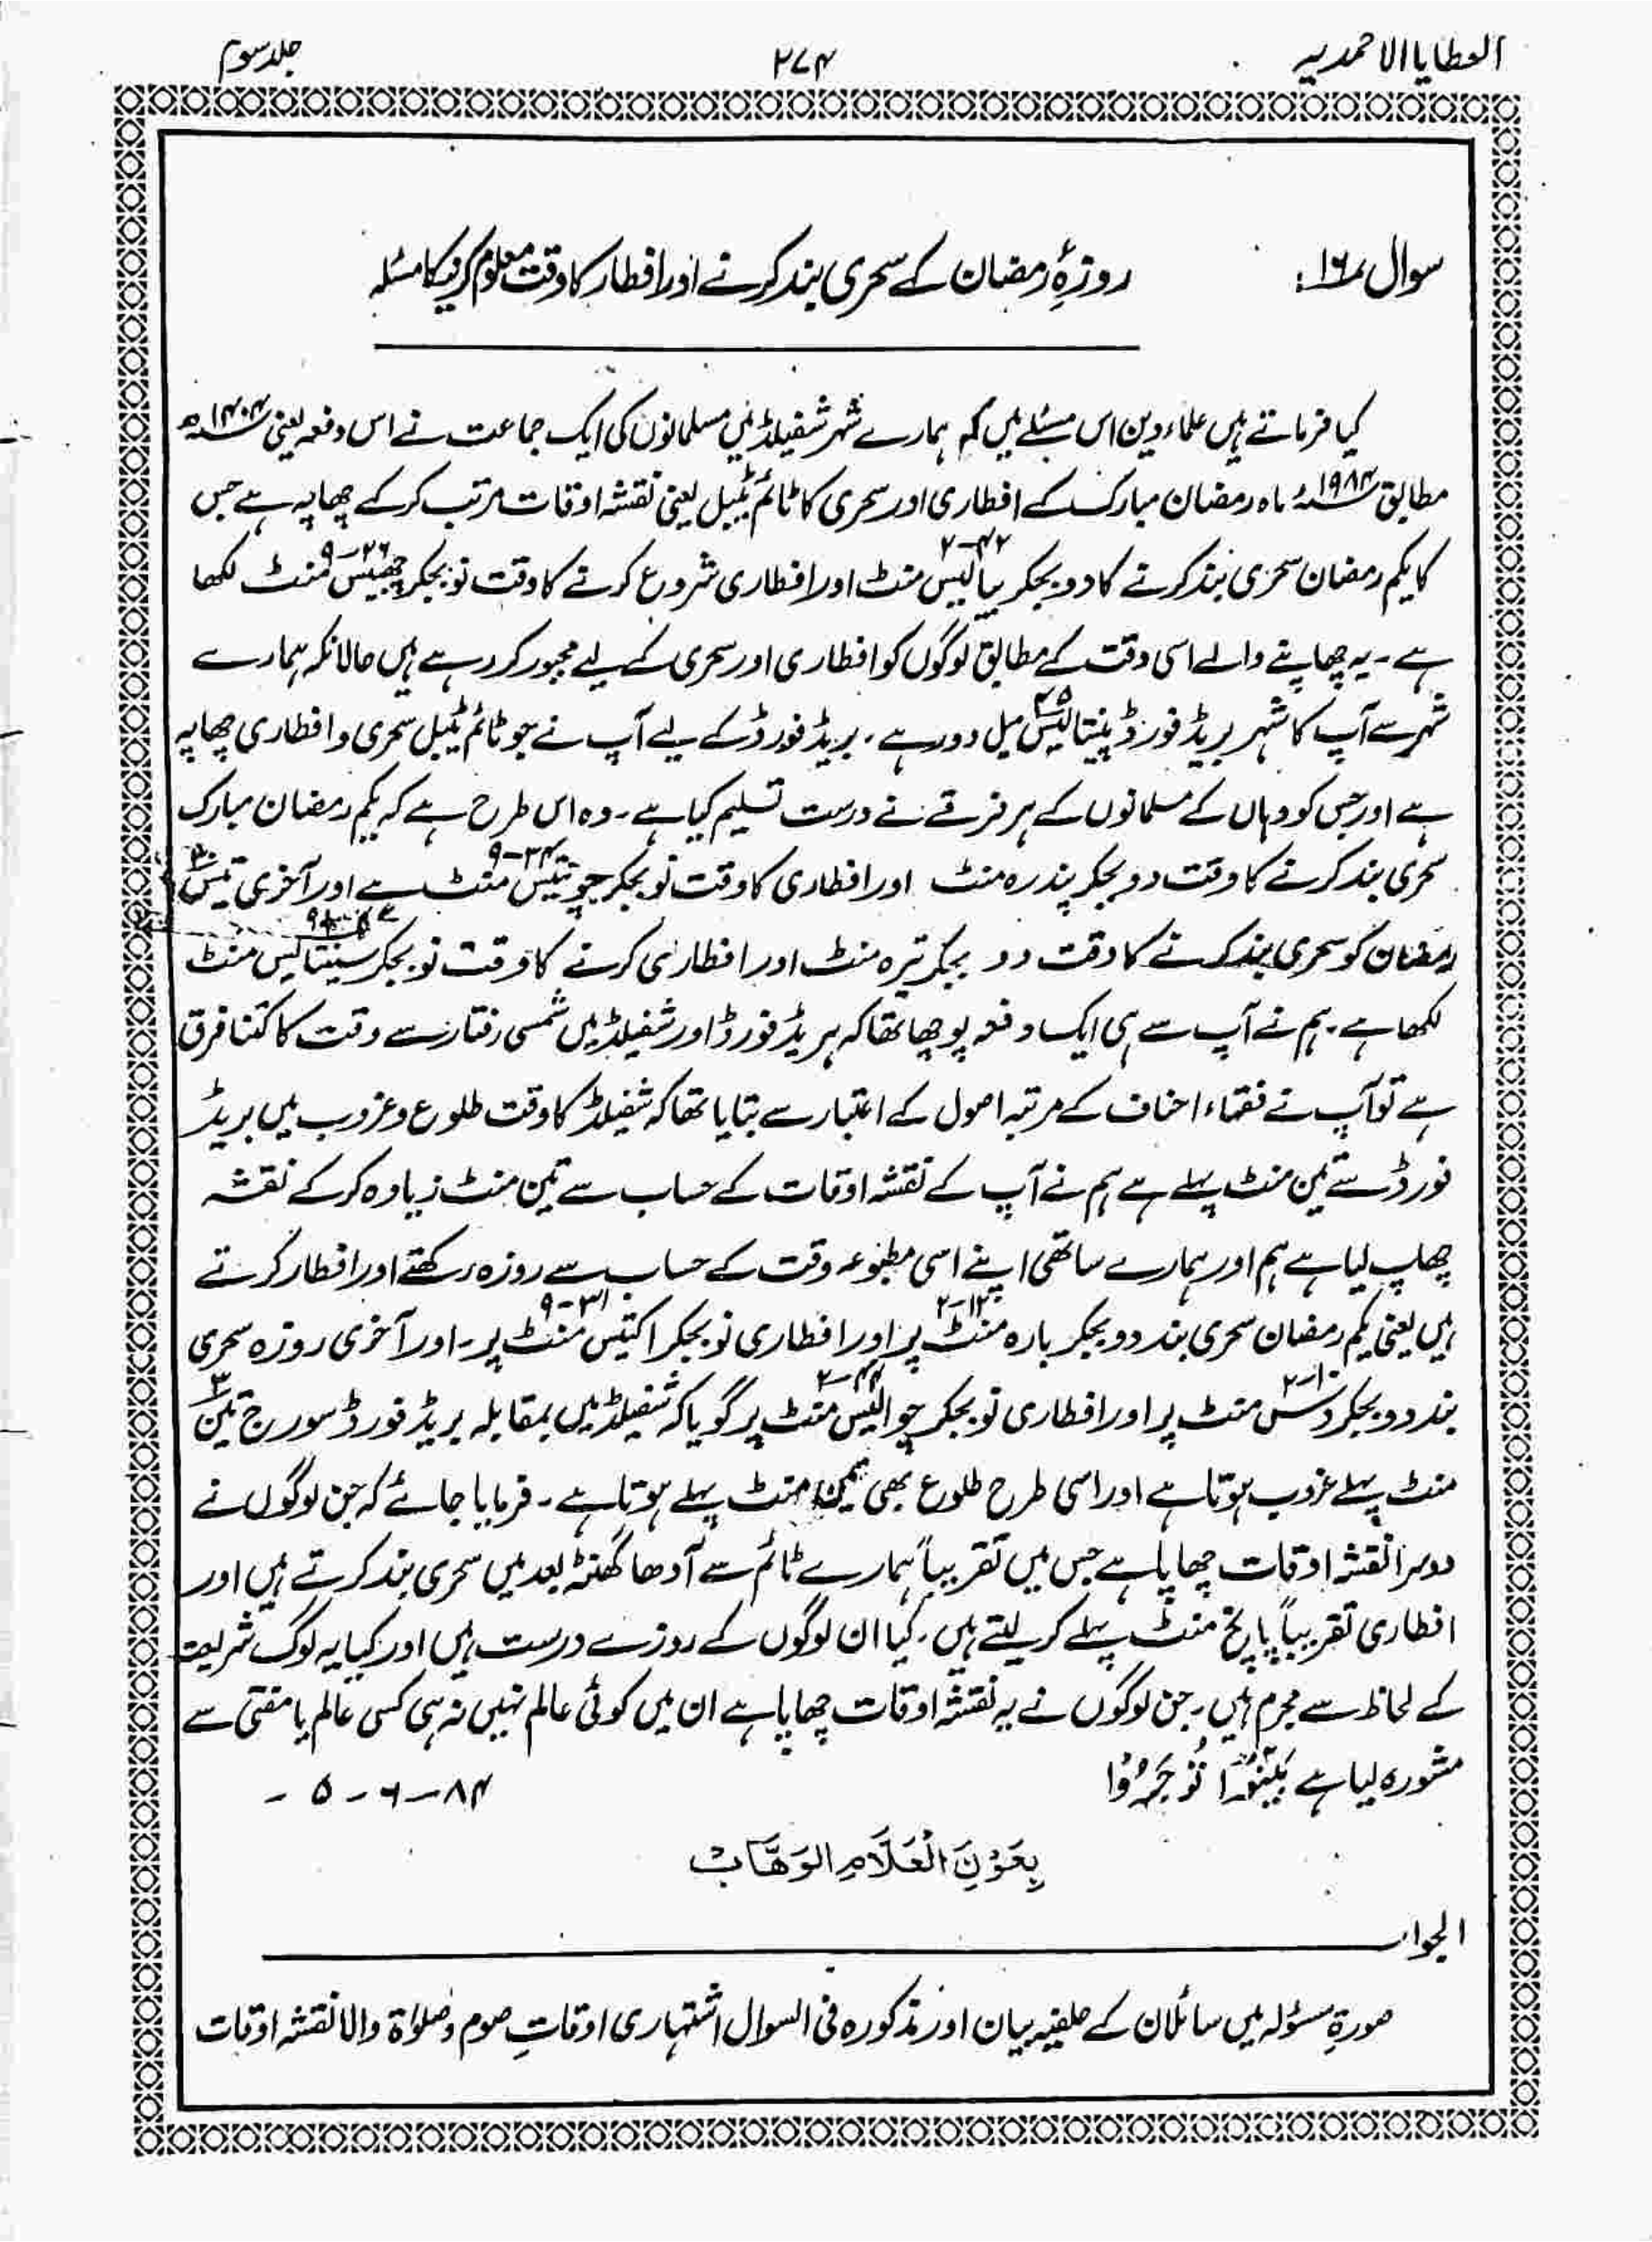 العطایا الاحمدیہ ۲۷۴ جلد سوم
سوال ۱۶: روزۂ رمضان کے سحری بند کرنے اور افطار کا وقت معلوم کرنیکا مسئلہ
کیا فرماتے ہیں علماء دین اس مسئلے میں کہ ہمارے شہر شفیلڈ میں مسلمانوں کی ایک جماعت نے اس دفعہ یعنی ۱۴۰۴ھ
مطابق ۱۹۸۴ء ماہ رمضان مبارک کے افطاری اور سحری کا ٹائم ٹیبل یعنی نقشہ اوقات مرتب کرکے چھاپہ ہے جس
کا یکم رمضان سحری بند کرنے کا دو بجکر بیالیس ۴۲-۲ منٹ اور افطاری شروع کرنے کا وقت نو بجکر چھبیس ۲۶-۹ منٹ لکھا
ہے۔ یہ چھاپنے والے اسی وقت کے مطابق لوگوں کو افطاری اور سحری کے لیے مجبور کر رہے ہیں حالانکہ ہمارے
شہر سے آپ کا شہر بریڈ فورڈ پینتالیس ۴۵ میل دور ہے۔ بریڈ فورڈ کے لیے آپ نے جو ٹائم ٹیبل سحری و افطاری چھاپہ
ہے اور جس کو وہاں کے مسلمانوں کے ہر فرقے نے درست تسلیم کیا ہے۔ وہ اس طرح ہے کہ یکم رمضان مبارک
سحری بند کرنے کا وقت دو بجکر پندرہ منٹ اور افطاری کا وقت نو بجکر چونتیس ۳۴-۹ منٹ ہے اور آخری تیس ۳۰
رمضان کو سحری بند کرنے کا وقت دو بجکر تیرہ منٹ اور افطاری کرنے کا وقت نو بجکر سینتالیس منٹ
لکھا ہے۔ ہم نے آپ سے ہی ایک دفعہ پوچھا تھا کہ بریڈ فورڈ اور شفیلڈ میں شمسی رفتار سے وقت کا کتنا فرق
ہے تو آپ نے فقہاء احناف کے مرتبہ اصول کے اعتبار سے بتایا تھا کہ شفیلڈ کا وقت طلوع و غروب میں بریڈ
فورڈ سے تین منٹ پہلے ہے ہم نے آپ کے نقشہ اوقات کے حساب سے تین منٹ زیادہ کرکے نقشہ
چھاپ لیا ہے ہم اور ہمارے ساتھی اپنے اسی مطبوعہ وقت کے حساب سے روزہ رکھتے اور افطار کرتے
ہیں یعنی یکم رمضان سحری بند دو بجکر بارہ ۱۲-۲ منٹ پر اور افطاری نو بجکر اکتیس ۳۱-۹ منٹ پر۔ اور آخری روزہ سحری
بند دو بجکر دس ۱۰-۲ منٹ پر اور افطاری نو بجکر چوالیس ۴۴-۲ منٹ پر گویا کہ شفیلڈ میں بمقابلہ بریڈ فورڈ سورج تین ۳
منٹ پہلے غروب ہوتا ہے اور اسی طرح طلوع بھی تین منٹ پہلے ہوتا ہے۔ فرمایا جائے کہ جن لوگوں نے
دوسرا نقشہ اوقات چھاپا ہے جس میں تقریباً ہمارے ٹائم سے آدھا گھنٹہ بعد میں سحری بند کرتے ہیں اور
افطاری تقریباً پانچ منٹ پہلے کر لیتے ہیں۔ کیا ان لوگوں کے روزے درست ہیں اور کیا یہ لوگ شریعت
کے لحاظ سے مجرم ہیں۔ جن لوگوں نے یہ نقشہ اوقات چھاپا ہے ان میں کوئی عالم نہیں نہ ہی کسی عالم یا مفتی سے
مشورہ لیا ہے بَیِّنُوْا تُوْجَرُوْا ۸۴-۶-۵-
بِعَوْنِ الْعَلَّامِ الْوَهَّابْ
الجواب
صورۃِ مسؤلہ میں سائلان کے حلفیہ بیان اور مذکورہ فی السوال اشتہاری اوقاتِ صوم و صلوٰۃ والا نقشہ اوقات